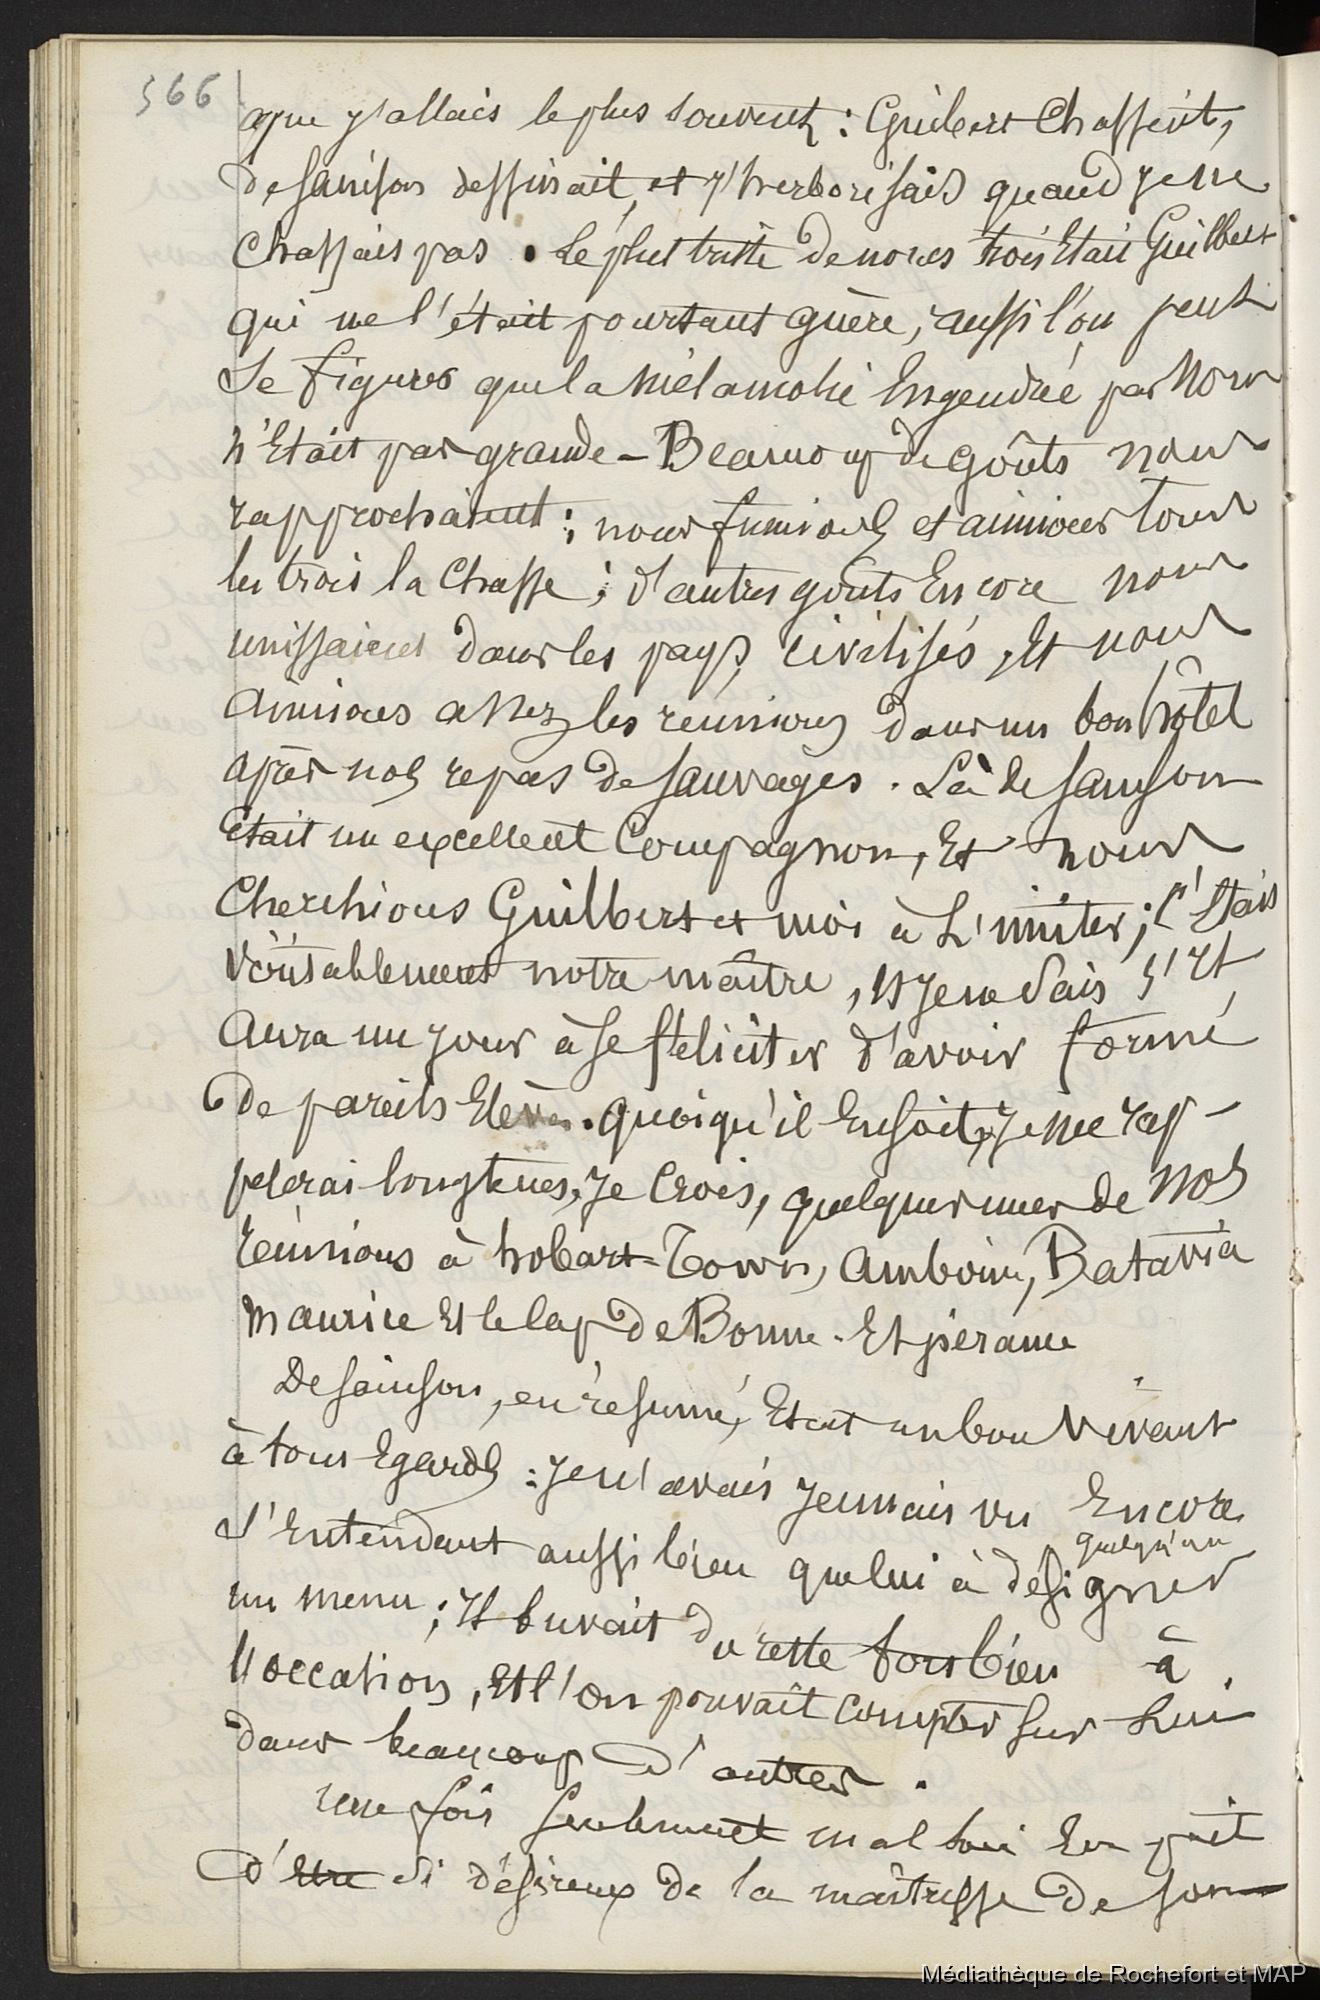 366
que j'allais le plus souvent : Guilbert Chassait,
de Sainson dessinait, et j'herborisais quand je ne
Chassais pas . Le plus triste de nous trois Etait Guilbert
qui ne l'était pourtant guère, aussi l'on peut
Se figurer que la Mélancolie Engendrée par Nous
n'Etait pas grande - Beaucoup de goûts nous
rapprochaient ; nous fumions et aimions tous
les trois la Chasse ; d'autres goûts Encore nous
unissaient dans les pays civilisés, Et nous
Aimions assez les réunions dans un bon hôtel
après nos repas de sauvages . Là de Sainson
était un excellent Compagnon, Et nous
Cherchions Guilbert et moi à L'imiter ; C'Etait
Véritablement notre maître, Et je ne Sais S'Il
Aura un jour à se féliciter d'avoir formé
de pareils Elèves . quoiqu'il En soit, je me rap-
pelerai longtems, je Crois, quelques unes de Nos
réunions à hobart-Town, Amboine, Batavia
Maurice Et le Cap de Bonne-Espérance
De Sainson, en résumé, Etait un bon Vivant
à tous Egards : je n'avais jamais vu Encore
quelqu'un
S'Entendant aussi bien que lui à désigner
un menu ; Il buvait du reste fort bien à
l'occasion, Et l'on pouvait compter sur Lui
dans beaucoup d'autres .
une fois seulement mal lui En prit
d'Etre si désireux de la maîtresse de son
Médiathèque de Rochefort et MAP